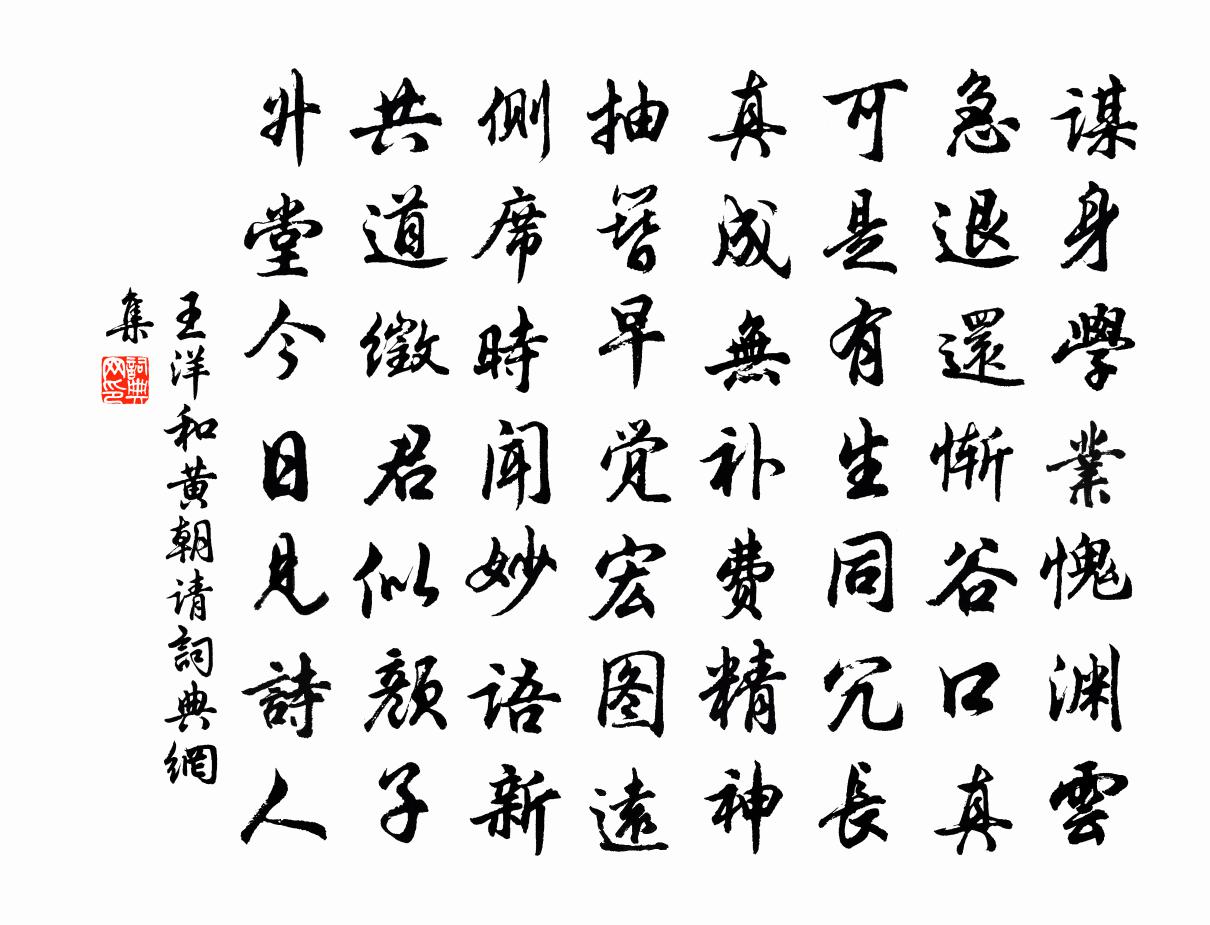 謀身學業愧渊雲
急退還慚谷口真
可是有生同冗長
真成無补費精神
抽簪早觉宏图遠
側席時闻妙语新
共道徵君似颜子
升堂今日見詩人
王洋和黄朝请詞典網
集
詞典網印